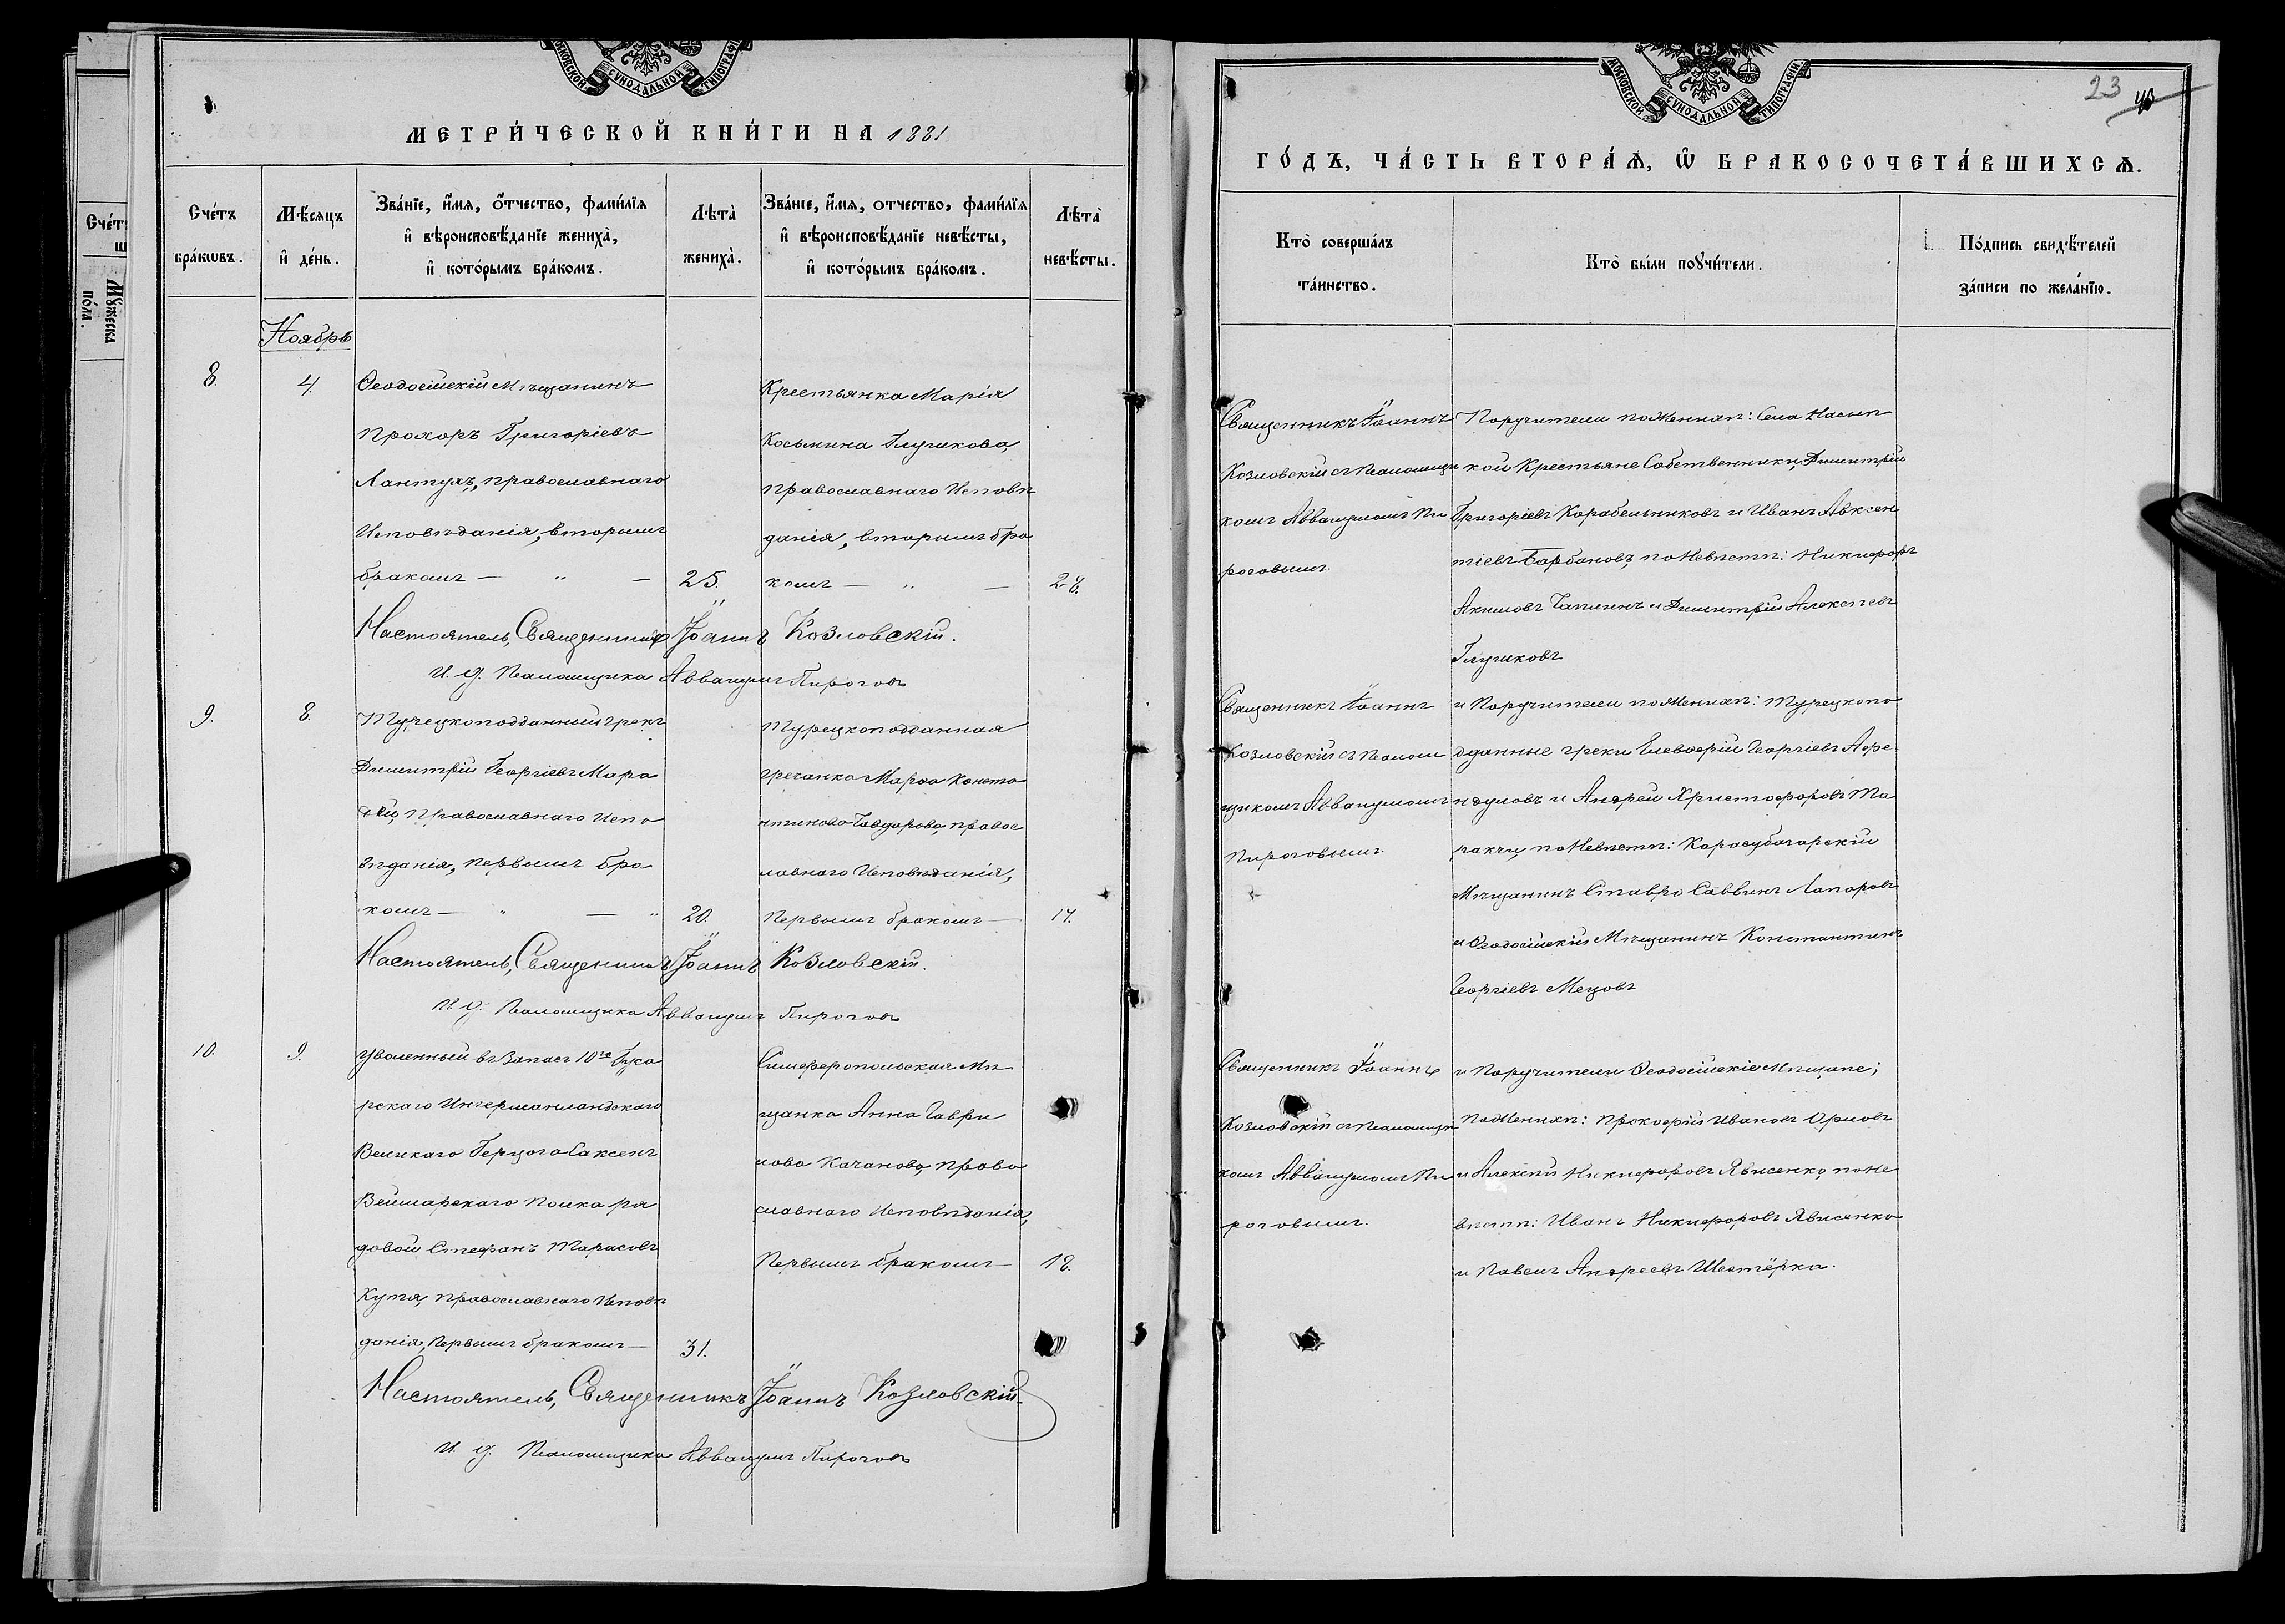 МОСКОВСКОЙ СѴНОДАЛЬНОЙ ТИПОГРАФІИ
МЕТРИ́ЧЕСКОЙ КНИ́ГИ НА 1881
Сче́тъ бра́кѡвъ.
Мѣ́сяцъ и де́нь.
Зва́нїе, и҆́мя, о҆́тчество, фами́лїя
и҆ вѣроисповѣ́данїе жениха̀,
и҆ кото́рымъ бра́комъ.
Лѣта̀ жениха̀.
Зва́нїе, и҆́мя, отчество, фами́лїя
и҆ вѣроисповѣ́данїе невѣ́сты,
и҆ кото́рымъ бра́комъ.
Лѣта̀ невѣ́сты.
Ноябрь
8.
4.
Ѳеодосійскій Мѣщанинъ
Прохоръ Григоріевъ
Лантухъ, православнаго
Исповѣданія, вторымъ
бракомъ — „ —
25.
Крестьянка Марія
Косьмина Глушкова,
православнаго Исповѣ
данія, вторымъ бра
комъ — „ —
24.
Настоятель, Священникъ Іоаннъ Козловскій.
И. д. Псаломщика Аввакумъ Пироговъ
9.
8.
Турецкоподданный грекъ
Димитрій Георгіевъ Мара
православнаго Испо
вѣданія, первымъ бра
комъ — „ — „
20.
Турецкоподданная
гречанка Марѳа Конста
нтинова православ
лавнаго Исповѣданія,
Первымъ бракомъ —
17.
Настоятель, Священникъ Іоаннъ Козловскій.
И. д. Псаломщика Аввакумъ Пироговъ
10.
9.
Уволенный въ Запасъ 10го Гуса
рскаго Ингерманландскаго
Великаго Герцога Саксенъ
Веймарскаго Полка ря
довой Стефанъ Тарасовъ
Кутя, православнаго Исповѣ
данія, первымъ бракомъ —
31.
Симферопольская Мѣ
щанка Анна Гаври
лова Качанова, право
славнаго Исповѣданія,
Первымъ бракомъ —
18.
Настоятель, Священникъ Іоаннъ Козловскій.
И. д. Псаломщика Аввакумъ Пироговъ
МОСКОВСКОЙ СѴНОДАЛЬНОЙ ТИПОГРАФІИ
23
ГО́ДЪ, ЧА́СТЬ ВТОРА́Ѧ, Ѡ҆ БРАКОСОЧЕТА́ВШИХСѦ.
Кто̀ соверша́лъ
та́инство.
Кто̀ бы́ли поꙋчи́тели.
По́дпись свидѣ́телей
за́писи по жела́нїю.
Священникъ Іоаннъ
Козловскій съ Псаломщи
комъ Аввакумомъ Пи
роговымъ.
Поручители по Женихѣ: Села Насып
кой Крестьяне Собственники, Димитрій
Григоріевъ Карабельниковъ и Иванъ Авксен
тіевъ Барбановъ, по Невѣстѣ: Никифоръ
Акимовъ Чаплинъ и Димитрій Алексѣевъ
Глушковъ
Священникъ Іоаннъ
Козловскій съ Псалом
щикомъ Аввакумомъ
Пироговымъ.
Поручители по Женихѣ: Турецкопо
дданные греки Елевѳерій Георгіевъ
и Андрей Христофоровъ Та
ракчи, по Невѣстѣ: Карасубазарскій
Мѣщанинъ Ставро Саввинъ Лапоровъ
и Ѳеодосійскій Мѣщанинъ Константинъ
Георгіевъ Мецовъ
Священникъ Іоаннъ
Козловскій съ Псаломщи
комъ Аввакумомъ Пи
роговымъ.
Поручители Ѳеодосійскіе Мѣщане;
по Женихѣ: Прокофій Ивановъ Орловъ
и Алексѣй Никифоровъ Явисенко, по Не
вѣстѣ: Иванъ Никифоровъ Явисенко
и Павелъ Андреевъ Шестёрка.
Сче́тъ
Мꙋ́жеска по́ла.